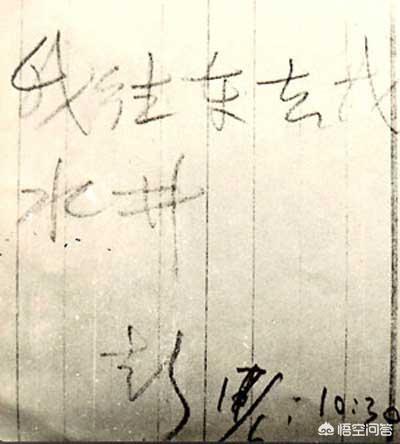 我往东去找
水井
彭 17/6:10:30
悟空问答